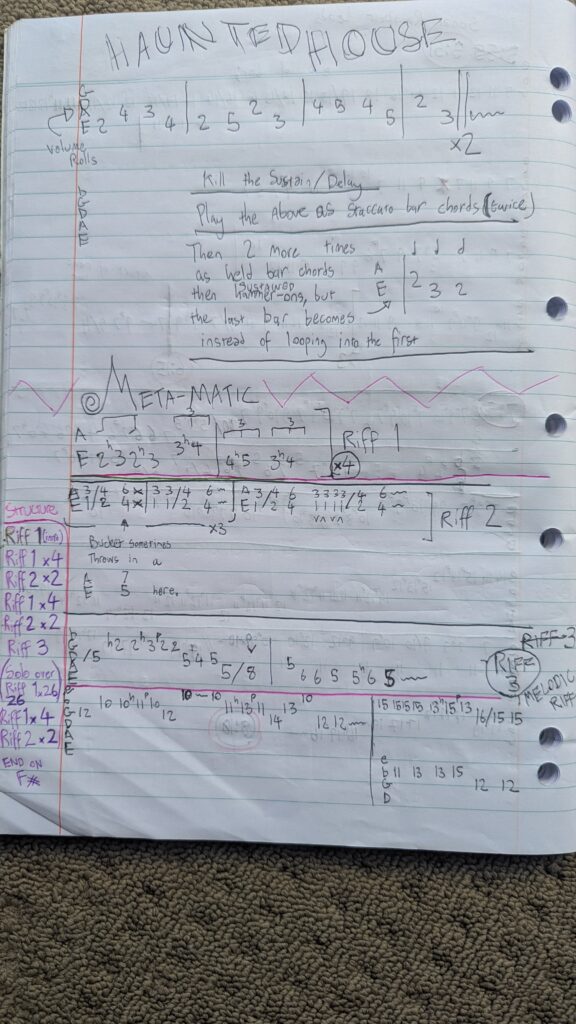 HAUNTED HOUSE
G
D
A
E 2 4 3 4 | 2 5 2 3 | 4 5 4 5 | 2 3 ||
x2
Volume Rolls
Kill the Sustain/Delay
Play the Above as Staccato bar chords (twice)
Then 2 more times
as held bar chords
then SUSTAINED hammer-ons, but
the last bar becomes
instead of looping into the first
A
E | 2 3 2
META-MATIC
3 3 3
A
E 2h3 2h3 3h4 | 4h5 3h4
Riff 1
x4
A 3/4 6 x | 3 3/4 6 ~ | A 3/4 6 3333/4 6 ~
E 1/2 4 x | 1 1/2 4 ~ | E 1/2 4 1111/2 4 ~
x3
Riff 2
Bucket sometimes
Throws in a
A 7
E 5 here.
Structure
Riff 1 (intro)
Riff 1 x4
Riff 2 x2
Riff 1 x4
Riff 2 x2
Riff 3
(Solo over)
Riff 1, 26
26
Riff 1 x4
Riff 2 x2
END ON
F#
/5 h2 2h3p2 2 5 4 5 5/8 | 5 6 6 5 5h6 5 ~
RIFF 3
RIFF 3
MELODIC RIFF
12 10 10h11p10 12 10 ~ 10 11h13p11 14 13 10 12 12 ~
15 15 15 15 13h15p13 16/15 15
e
b 11 13 13 15
G 12 12
D